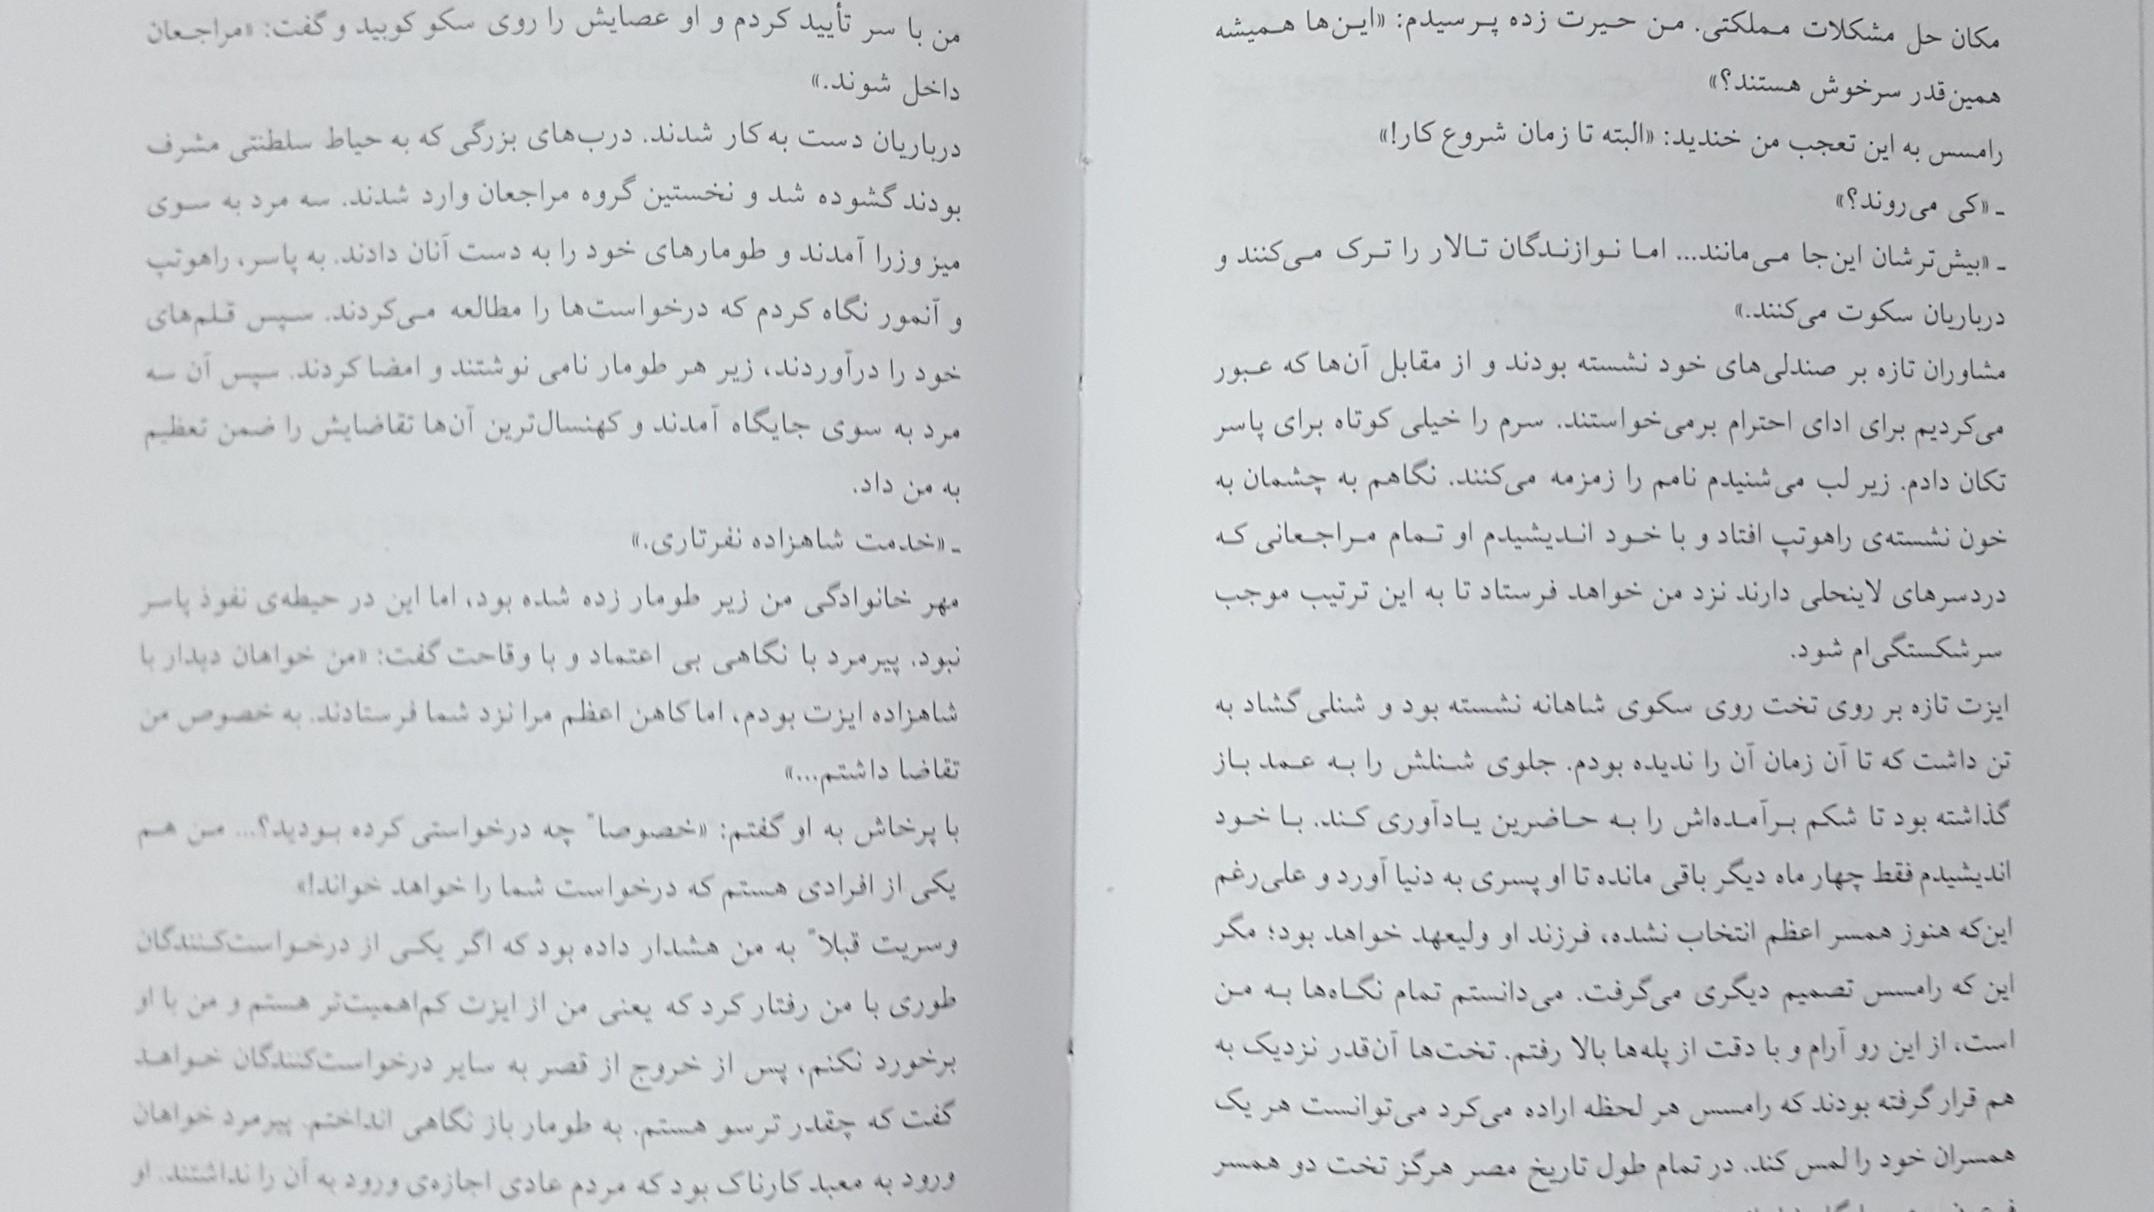 مکان حل مشکلات مملکتی. من حیرت زده پرسیدم: «این‌ها همیشه
همین‌قدر سرخوش هستند؟»
رامسس به این تعجب من خندید: «البته تا زمان شروع کار!»
ـ «کی می‌روند؟»
ـ «بیش‌ترشان این‌جا می‌مانند... اما نوازندگان تالار را ترک می‌کنند و
درباریان سکوت می‌کنند.»
مشاوران تازه بر صندلی‌های خود نشسته بودند و از مقابل آن‌ها که عبور
می‌کردیم برای ادای احترام برمی‌خواستند. سرم را خیلی کوتاه برای پاسر
تکان دادم. زیر لب می‌شنیدم نامم را زمزمه می‌کنند. نگاهم به چشمان به
خون نشسته‌ی راهوتپ افتاد و با خود اندیشیدم او تمام مراجعانی که
دردسرهای لاینحلی دارند نزد من خواهد فرستاد تا به این ترتیب موجب
سرشکستگی‌ام شود.
ایزت تازه بر روی تخت روی سکوی شاهانه نشسته بود و شنلی گشاد به
تن داشت که تا آن زمان آن را ندیده بودم. جلوی شنلش را به عمد باز
گذاشته بود تا شکم برآمده‌اش را به حاضرین یادآوری کند. با خود
اندیشیدم فقط چهار ماه دیگر باقی مانده تا او پسری به دنیا آورد و علی‌رغم
این‌که هنوز همسر اعظم انتخاب نشده، فرزند او ولیعهد خواهد بود؛ مگر
این که رامسس تصمیم دیگری می‌گرفت. می‌دانستم تمام نگاه‌ها به من
است، از این رو آرام و با دقت از پله‌ها بالا رفتم. تخت‌ها آن‌قدر نزدیک به
هم قرار گرفته بودند که رامسس هر لحظه اراده می‌کرد می‌توانست هر یک
همسران خود را لمس کند. در تمام طول تاریخ مصر هرگز تخت دو همسر
من با سر تأیید کردم و او عصایش را روی سکو کوبید و گفت: «مراجعان
داخل شوند.»
درباریان دست به کار شدند. درب‌های بزرگی که به حیاط سلطنتی مشرف
بودند گشوده شد و نخستین گروه مراجعان وارد شدند. سه مرد به سوی
میز وزرا آمدند و طومارهای خود را به دست آنان دادند. به پاسر، راهوتپ
و آنمور نگاه کردم که درخواست‌ها را مطالعه می‌کردند. سپس قلم‌های
خود را درآوردند، زیر هر طومار نامی نوشتند و امضا کردند. سپس آن سه
مرد به سوی جایگاه آمدند و کهنسال‌ترین آن‌ها تقاضایش را ضمن تعظیم
به من داد.
ـ «خدمت شاهزاده نفرتاری.»
مهر خانوادگی من زیر طومار زده شده بود، اما این در حیطه‌ی نفوذ پاسر
نبود. پیرمرد با نگاهی بی اعتماد و با وقاحت گفت: «من خواهان دیدار با
شاهزاده ایزت بودم، اما کاهن اعظم مرا نزد شما فرستادند. به خصوص من
تقاضا داشتم...»
با پرخاش به او گفتم: «خصوصاً چه درخواستی کرده بودید؟... من هم
یکی از افرادی هستم که درخواست شما را خواهد خواند!»
وسریت قبلاً به من هشدار داده بود که اگر یکی از درخواست‌کنندگان
طوری با من رفتار کرد که یعنی من از ایزت کم‌اهمیت‌تر هستم و من با او
برخورد نکنم، پس از خروج از قصر به سایر درخواست‌کنندگان خواهد
گفت که چقدر ترسو هستم. به طومار باز نگاهی انداختم. پیرمرد خواهان
ورود به معبد کارناک بود که مردم عادی اجازه‌ی ورود به آن را نداشتند. او